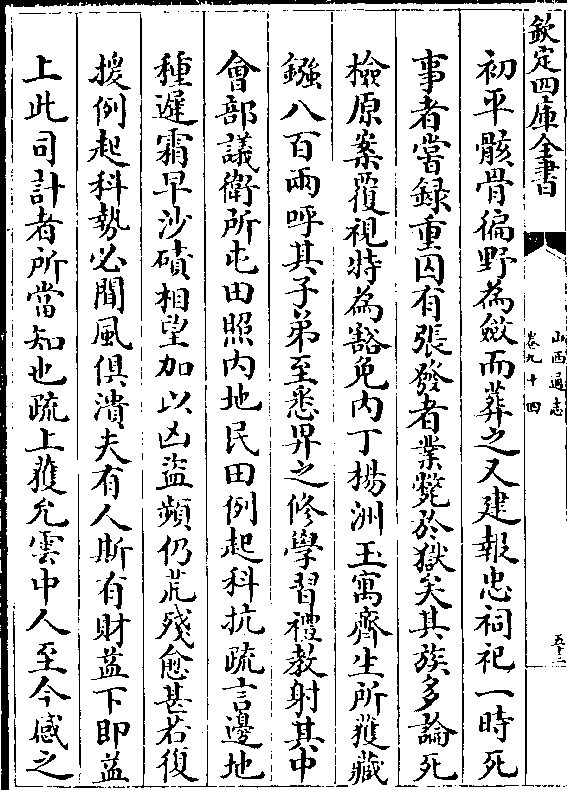 欽定四庫全書
山西通志
卷九十四
五十二
初平骸骨徧野為斂而葬之又建報忠祠祀一時死
事者嘗録重囚有張發者業斃於獄矣其族多論死
檢原案覆視特為豁免内丁楊洲玉寓齊生所獲藏
鏹八百兩呼其子弟至悉畀之修學習禮教射其中
會部議衛所屯田照内地民田例起科抗疏言邊地
種遲霜早沙磧相望加以凶盜頻仍荒殘愈甚若復
援例起科勢必聞風俱潰夫有人斯有財益下即益
上此司計者所當知也疏上獲允雲中人至今感之